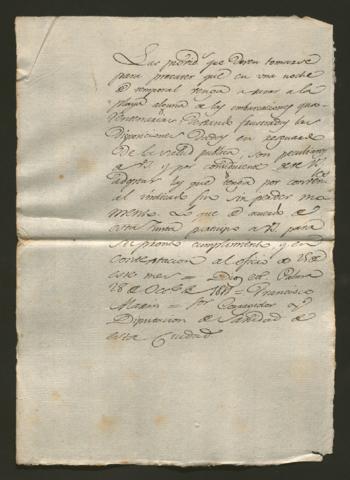 Las medidas que deven tomarse
para precaver que en una noche
de temporal venga a parar a la
playa alguna de las embarcaciones que
quarentenarias frustrando las
Disposiciones Dadas en resguardo
de la salud publica, son peculiares
de V. y por consiguiente debe V.
adoptar las que tenga por conven.tes
al indicado fin sin perder mo
mento. Lo que de acuerdo de
esta Junta participo a V. para
su pronto cumplimiento y en
contestacion al oficio de 25 de
este mes = Dios Palma
28 de Octe. de = Francisco
Marin = Sor. Corregidor y
Diputacion de Sanidad de
esta Ciudad